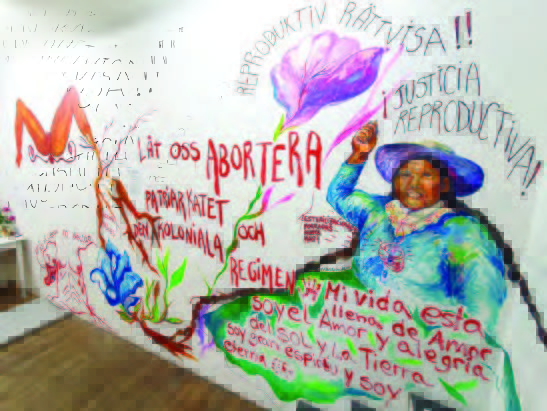 REPRODUKTIV RÄTTVISA!!
¡JUSTICIA
REPRODUCTIVA!
LÅT OSS ABORTERA
PATRIARKATET
OCH
DEN KOLONIALA
REGIMEN
Mi vida esta
llena de Amor
soy el Amor y alegría
del sol y La Tierra
soy gran espiritu y soy
eterna